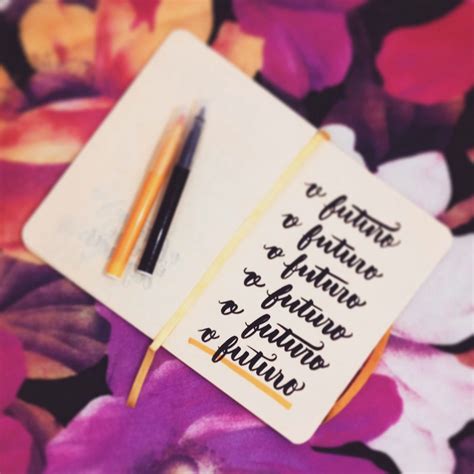 o futuro
o futuro
o futuro
o futuro
o futuro
o futuro